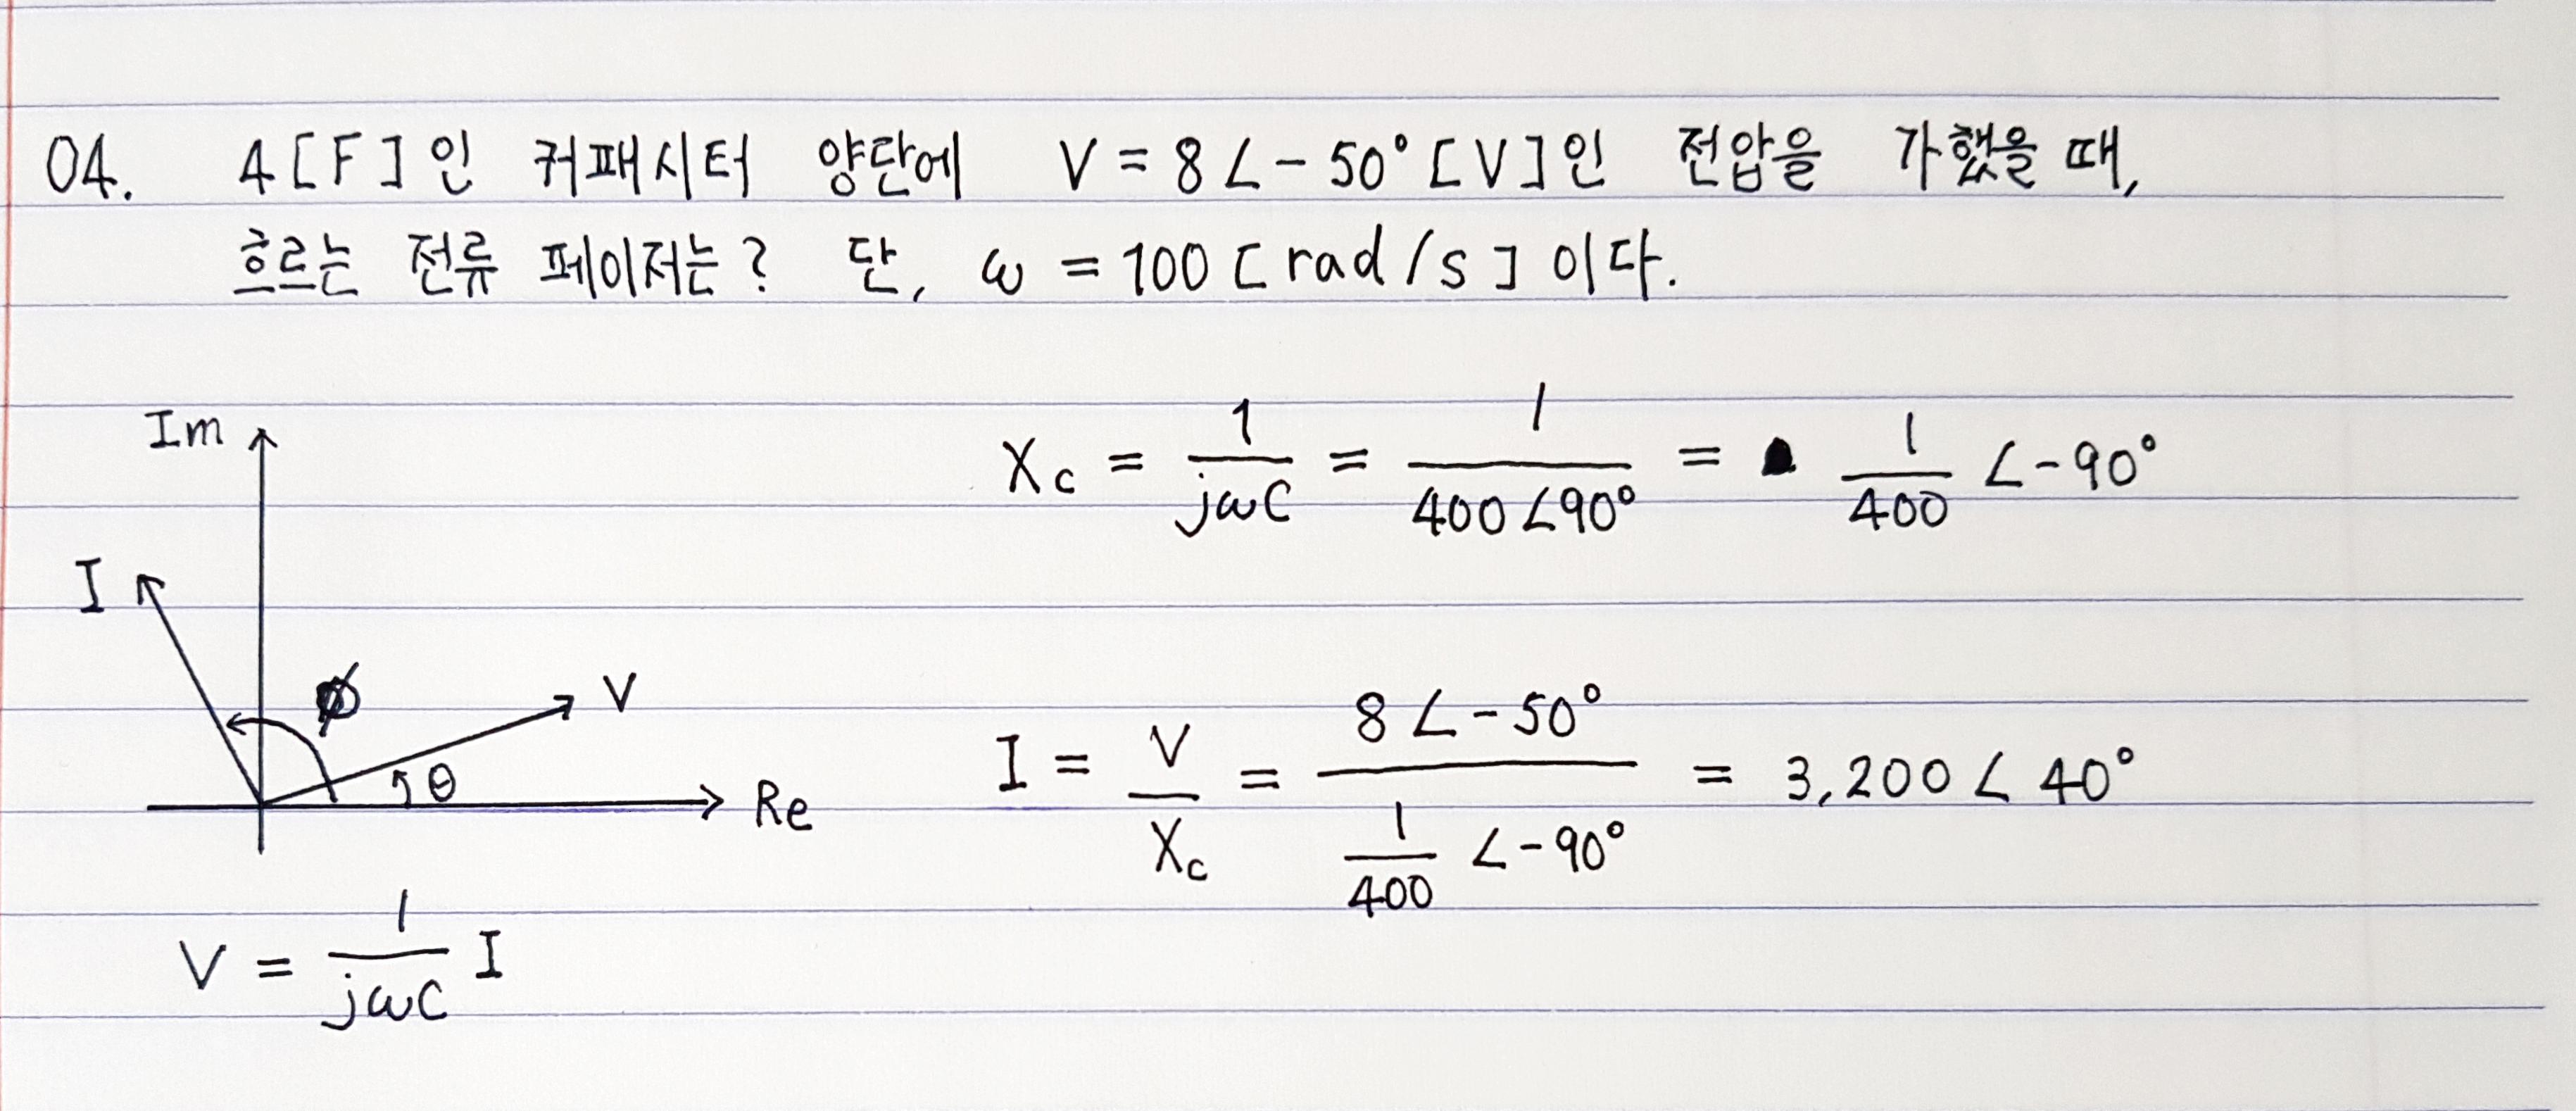 04. 4[F]인 커패시터 양단에 V = 8∠-50°[V]인 전압을 가했을 때,
흐르는 전류 페이저는? 단, ω = 100 [rad/s]이다.
Im
I
ϕ
V
θ
Re
V = 1/jωC I
Xc = 1/jωC = 1/400∠90° = 1/400 ∠-90°
I = V/Xc = 8∠-50° / 1/400 ∠-90° = 3,200∠40°